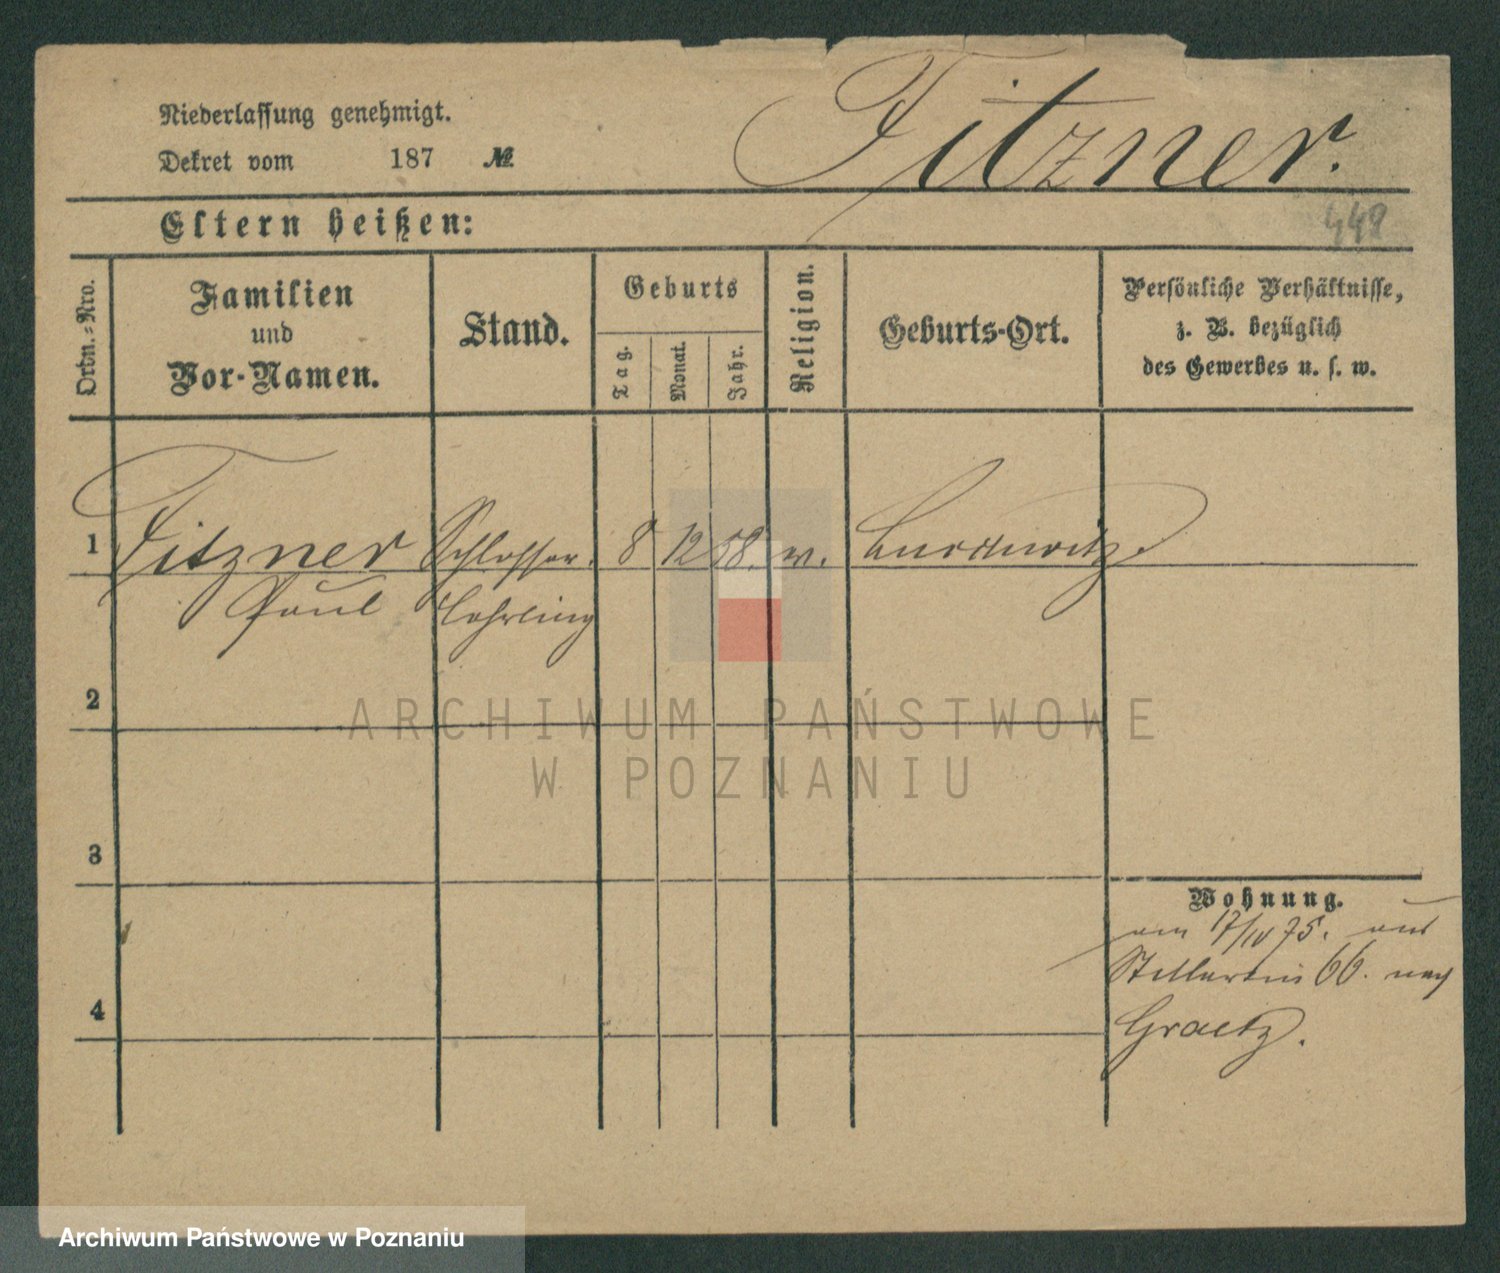 Niederlassung genehmigt.
Dekret vom 187 №
Fitzner.
Eltern heißen:
448
Ordn.-Nro.
Familien
und
Vor-Namen.
Stand.
Geburts
Tag.
Monat.
Jahr.
Religion.
Geburts-Ort.
Persönliche Verhältnisse,
z. B. bezüglich
des Gewerbes u. s. w.
1 Fitzner Schlosser 8 12 58.
Paul Lehrling
2
3
4
Wohnung.
am 17/IV 75. aus
66. nach
Graetz.
ARCHIWUM PAŃSTWOWE
W POZNANIU
Archiwum Państwowe w Poznaniu